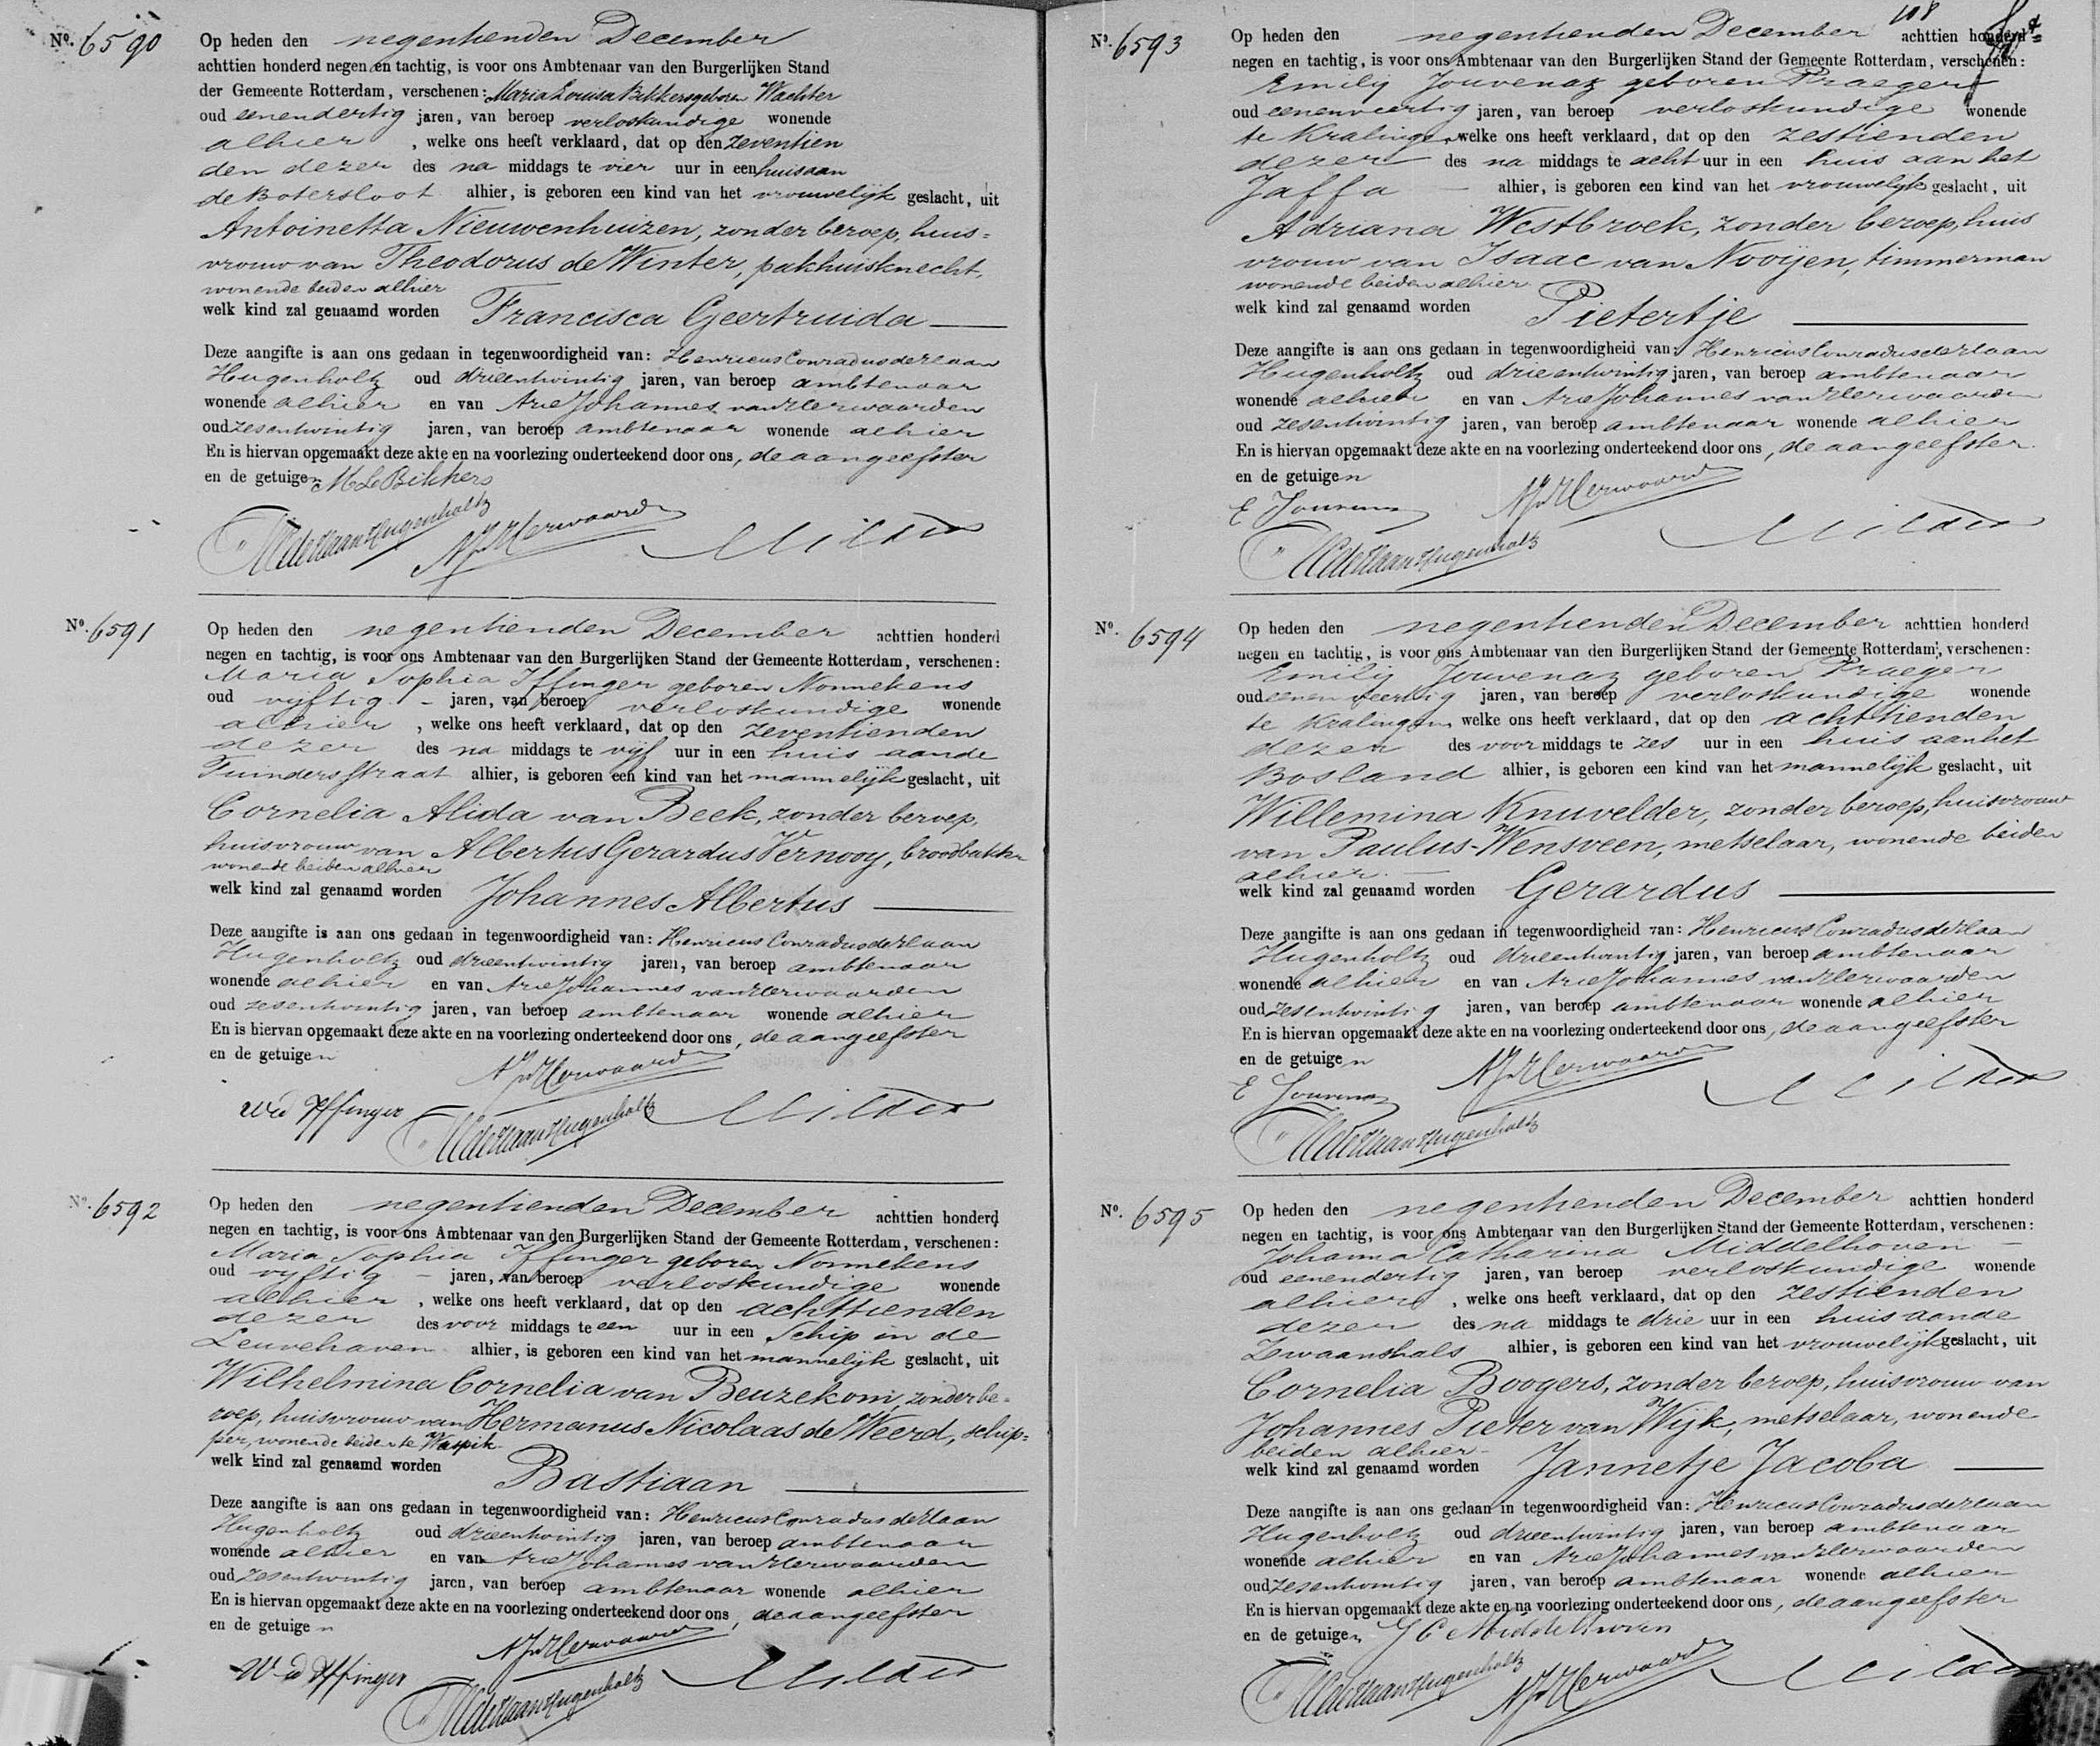 Nº. 6590
Op heden den negentienden December
achttien honderd negen en tachtig, is voor ons Ambtenaar van den Burgerlijken Stand
der Gemeente Rotterdam, verschenen: Maria Louisa Bikkers geboren Wachter
oud eenendertig jaren, van beroep verloskundige wonende
alhier , welke ons heeft verklaard, dat op den zeventien
den dezer des na middags te vier uur in een huis aan
de Botersloot alhier, is geboren een kind van het vrouwelijk geslacht, uit
Antoinetta Nieuwenhuizen, zonder beroep, huis=
vrouw van Theodorus de Winter, pakhuisknecht,
wonende beiden alhier
welk kind zal genaamd worden Francisca Geertruida
Deze aangifte is aan ons gedaan in tegenwoordigheid van: Henricus Conradus der Laan
Hugenholtz oud drieentwintig jaren, van beroep ambtenaar
wonende alhier en van Arie Johannes van Herwaarden
oud zesentwintig jaren, van beroep ambtenaar wonende alhier
En is hiervan opgemaakt deze akte en na voorlezing onderteekend door ons, de aangeefster
en de getuigen M L Bikkers
HC der Laan Hugenholtz AJvHerwaarden
Nº. 6591
Op heden den negentienden December achttien honderd
negen en tachtig, is voor ons Ambtenaar van den Burgerlijken Stand der Gemeente Rotterdam, verschenen:
Maria Sophia Iffinger geboren Nonnekens
oud vijftig - jaren, van beroep verloskundige wonende
alhier , welke ons heeft verklaard, dat op den zeventienden
dezer des na middags te vijf uur in een huis aan de
Tuindersstraat alhier, is geboren een kind van het mannelijk geslacht, uit
Cornelia Alida van Beek, zonder beroep,
huisvrouw van Albertus Gerardus Vernooy, broodbakker
wonende beiden alhier
welk kind zal genaamd worden Johannes Albertus
Deze aangifte is aan ons gedaan in tegenwoordigheid van: Henricus Conradus der Laan
Hugenholtz oud drieentwintig jaren, van beroep ambtenaar
wonende alhier en van Arie Johannes van Herwaarden
oud zesentwintig jaren, van beroep ambtenaar wonende alhier
En is hiervan opgemaakt deze akte en na voorlezing onderteekend door ons, de aangeefster
en de getuigen AJvHerwaarden
Wed Iffinger HC der Laan Hugenholtz
Nº. 6592
Op heden den negentienden December achttien honderd
negen en tachtig, is voor ons Ambtenaar van den Burgerlijken Stand der Gemeente Rotterdam, verschenen:
Maria Sophia Iffinger geboren Nonnekens
oud vijftig - jaren, van beroep verloskundige wonende
alhier , welke ons heeft verklaard, dat op den achttienden
dezer des voor middags te een uur in een Schip in de
Leuvehaven alhier, is geboren een kind van het mannelijk geslacht, uit
Wilhelmina Cornelia van Beuzekom, zonder be=
roep, huisvrouw van Hermanus Nicolaas de Weerd, schip=
per, wonende beiden te Waspik
welk kind zal genaamd worden Bastiaan
Deze aangifte is aan ons gedaan in tegenwoordigheid van: Henricus Conradus der Laan
Hugenholtz oud drieentwintig jaren, van beroep ambtenaar
wonende alhier en van Arie Johannes van Herwaarden
oud zesentwintig jaren, van beroep ambtenaar wonende alhier
En is hiervan opgemaakt deze akte en na voorlezing onderteekend door ons, de aangeefster
en de getuigen AJvHerwaarden
Wed Iffinger HC der Laan Hugenholtz
108
Nº. 6593
Op heden den negentienden December achttien honderd
negen en tachtig, is voor ons Ambtenaar van den Burgerlijken Stand der Gemeente Rotterdam, verschenen:
Emilij Jouvenaz geboren Praeger
oud eenenveertig jaren, van beroep verloskundige wonende
te Kralingen welke ons heeft verklaard, dat op den zestienden
dezer des na middags te acht uur in een huis aan het
Jaffa alhier, is geboren een kind van het vrouwelijk geslacht, uit
Adriana Westbroek, zonder beroep, huis
vrouw van Isaac van Nooijen, timmerman
wonende beiden alhier
welk kind zal genaamd worden Pietertje
Deze aangifte is aan ons gedaan in tegenwoordigheid van: Henricus Conradus der Laan
Hugenholtz oud drieentwintig jaren, van beroep ambtenaar
wonende alhier en van Arie Johannes van Herwaarden
oud zesentwintig jaren, van beroep ambtenaar wonende alhier
En is hiervan opgemaakt deze akte en na voorlezing onderteekend door ons, de aangeefster
en de getuigen AJvHerwaarden
E Jouvenaz
HC der Laan Hugenholtz
Nº. 6594
Op heden den negentienden December achttien honderd
negen en tachtig, is voor ons Ambtenaar van den Burgerlijken Stand der Gemeente Rotterdam, verschenen:
Emilij Jouvenaz geboren Praeger
oud eenenveertig jaren, van beroep verloskundige wonende
te Kralingen, welke ons heeft verklaard, dat op den achttienden
dezer des voor middags te zes uur in een huis aan het
Bosland alhier, is geboren een kind van het mannelijk geslacht, uit
Willemina Knuvelder, zonder beroep, huisvrouw
van Paulus Wensveen, metselaar, wonende beiden
alhier.
welk kind zal genaamd worden Gerardus
Deze aangifte is aan ons gedaan in tegenwoordigheid van: Henricus Conradus der Laan
Hugenholtz oud drieentwintig jaren, van beroep ambtenaar
wonende alhier en van Arie Johannes van Herwaarden
oud zesentwintig jaren, van beroep ambtenaar wonende alhier
En is hiervan opgemaakt deze akte en na voorlezing onderteekend door ons, de aangeefster
en de getuigen AJvHerwaarden
E Jouvenaz
HC der Laan Hugenholtz
Nº. 6595
Op heden den negentienden December achttien honderd
negen en tachtig, is voor ons Ambtenaar van den Burgerlijken Stand der Gemeente Rotterdam, verschenen:
Johanna Catharina Middelhoven
oud eenendertig jaren, van beroep verloskundige wonende
alhier , welke ons heeft verklaard, dat op den zestienden
dezer des na middags te drie uur in een huis aan de
Zwaanshals alhier, is geboren een kind van het vrouwelijk geslacht, uit
Cornelia Boogers, zonder beroep, huisvrouw van
Johannes Pieter van Wijk, metselaar, wonende
beiden alhier
welk kind zal genaamd worden Jannetje Jacoba
Deze aangifte is aan ons gedaan in tegenwoordigheid van: Henricus Conradus der Laan
Hugenholtz oud drieentwintig jaren, van beroep ambtenaar
wonende alhier en van Arie Johannes van Herwaarden
oud zesentwintig jaren, van beroep ambtenaar wonende alhier
En is hiervan opgemaakt deze akte en na voorlezing onderteekend door ons, de aangeefster
en de getuigen J C Middelhoven
HC der Laan Hugenholtz AJvHerwaarden